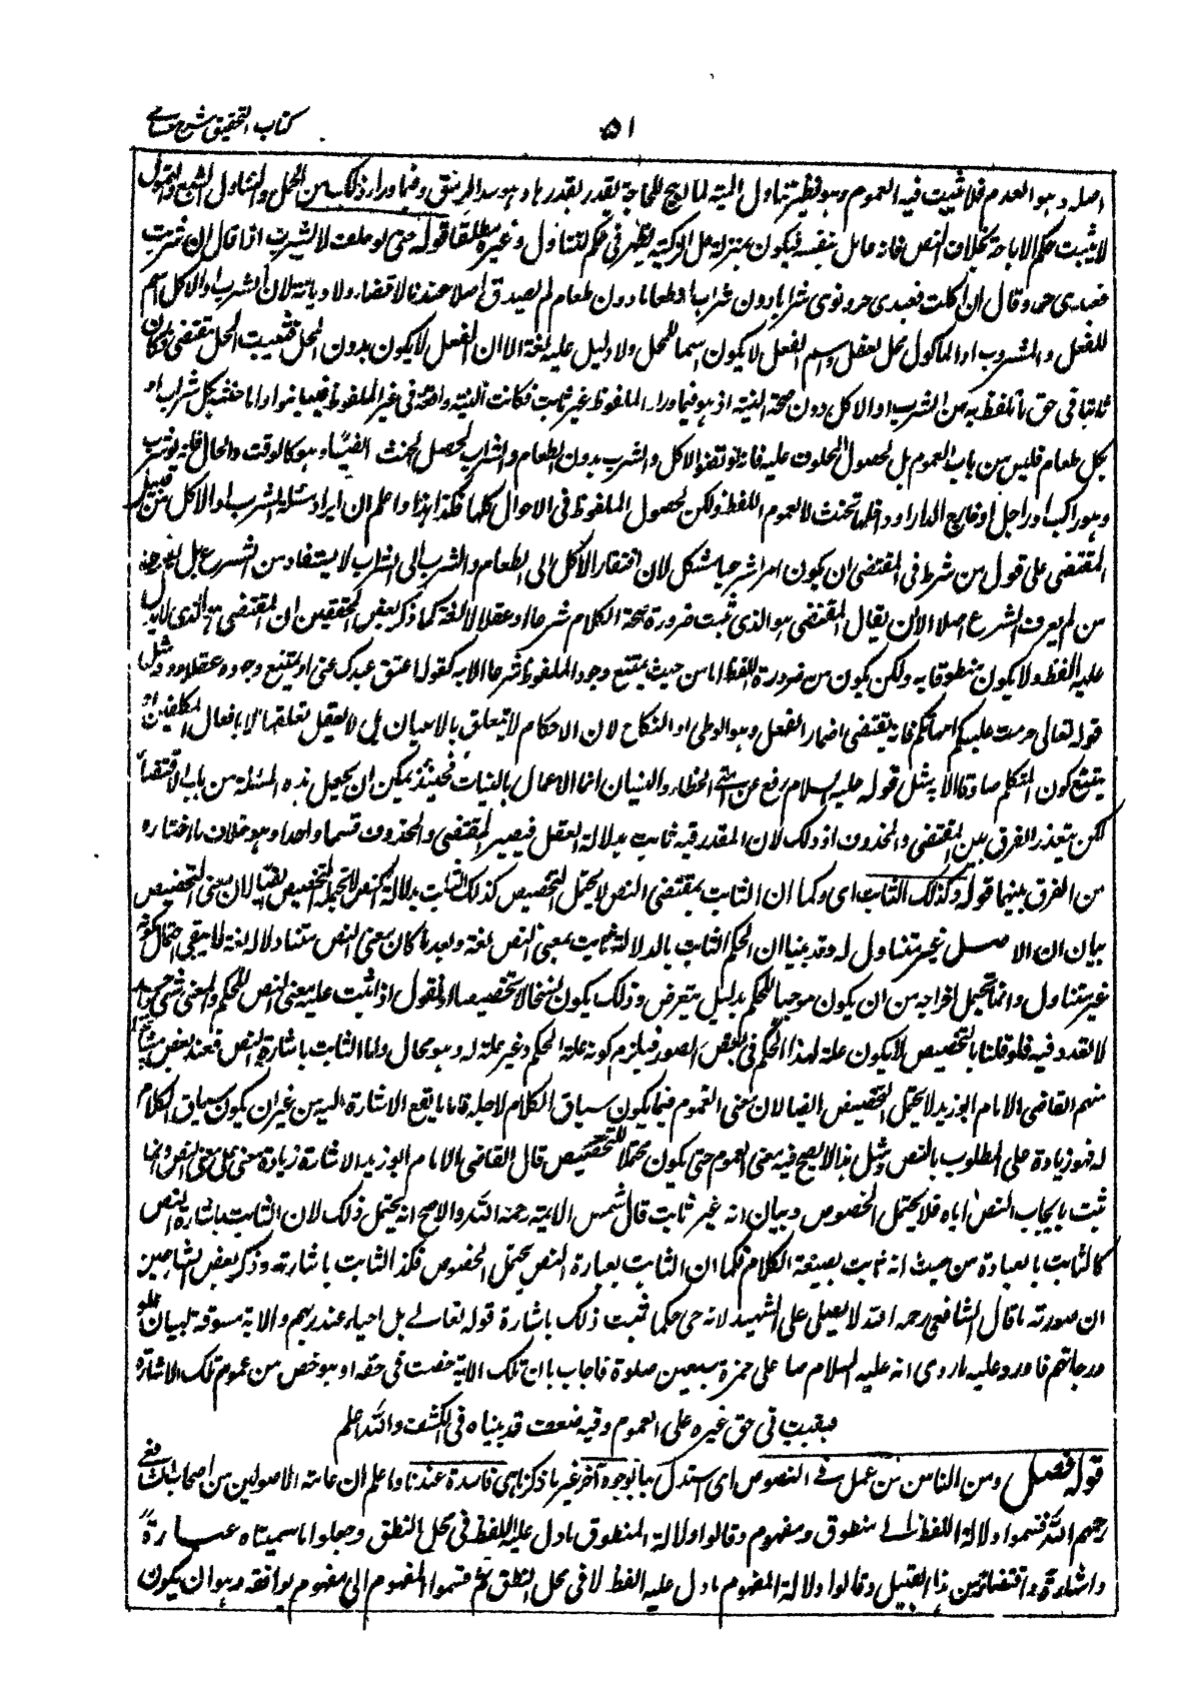 كتاب التحقيق شرح حسامي
٥١
اصله وهو العدم فلا يثبت فيه العموم وهو نظير تناول الميتة لما ابيح للحاجة تقدر بقدرها وهو سد الرمق وفيما وراء ذلك من الحمل والتناول الى الشبع
لا يثبت حكم الاباحة بخلاف النص فانه عامل بنفسه فيكون بمنزلة حل الذكية يظهر في حكم التناول وغيره مطلقا قوله حتى لو حلف لا يشرب اذا قال ان شربت
فعبدي حر وقال ان اكلت فعبدي حر ونوى شرابا دون شراب او طعاما دون طعام لم يصدق اصلا عندنا لا قضاء ولا ديانة لان الشرب والاكل اسم
للفعل والمشروب او الماكول محل الفعل واسم الفعل لا يكون اسما للمحل ولا دليل عليه لغة الا ان الفعل لا يكون بدون المحل فثبت المحل مقتضى فكان
ثابتا في حق ما تلفظ به من الشرب او الاكل دون صحة النية اذ هو فيما وراء الملفوظ غير ثابت فكانت النية واقعة في غير الملفوظ فيلغو واما حنثه بكل شراب او
بكل طعام فليس من باب العموم بل لحصول المحلوف عليه فانه لو تصور الاكل والشرب بدون الطعام والشراب لحصل الحنث ايضا وهو كالوقت والحال فانه لو شرب
وهو راكب او راجل او خارج الدار او داخلها يحنث لا لعموم اللفظ ولكن لحصول الملفوظ في الاحوال كلها فكذا هذا واعلم ان ايراد مسئلة الشرب او الاكل من قبيل
المقتضى على قول من شرط في المقتضى ان يكون امرا شرعيا مشكل لان افتقار الاكل الى الطعام والشرب الى الشراب لا يستفاد من الشرع بل يعرفه
من لم يعرف الشرع اصلا الا ان يقال المقتضى هو الذي ثبت ضرورة صحة الكلام شرعا او عقلا لا لغة كما ذكر بعض المحققين ان المقتضى هو الذي لا يدل
عليه اللفظ ولا يكون منطوقا به ولكن يكون من ضرورة اللفظ اما من حيث يمتنع وجود الملفوظ شرعا الا به كقوله اعتق عبدك عني او يمتنع وجوده عقلا بدونه مثل
قوله تعالى حرمت عليكم امهاتكم فانه يقتضي اضمار الفعل وهو الوطي او النكاح لان الاحكام لا تتعلق بالاعيان بل لا يعقل تعلقها الا بافعال المكلفين او
يمتنع كون المتكلم صادقا الا به مثل قوله عليه السلام رفع عن امتي الخطاء والنسيان انما الاعمال بالنيات فحينئذ يمكن ان يجعل هذه المسئلة من باب الاقتضاء
لكن يتعذر الفرق بين المقتضى والمحذوف اذ ذلك لان المقدر فيه ثابت بدلالة العقل فيصير المقتضى والمحذوف قسما واحدا وهو خلاف ما اختاره
من الفرق بينهما قوله وكذلك الثابت اى وكما ان الثابت بمقتضى النص لا يحتمل التخصيص كذلك الثابت بدلالة النص لا يحتمل التخصيص ايضا لان معنى التخصيص
بيان ان الاصل غير متناول له وقد بينا ان الحكم الثابت بالدلالة ثابت بمعنى النص لغة وبعد ما كان معنى النص متناولا له لغة لا يبقى احتمال كونه
غير متناول وانما يحتمل اخراجه من ان يكون موجبا للحكم بدليل يعترض وذلك يكون نسخا لا تخصيصا او نقول اذا ثبت علية معنى النص للحكم والمعنى شئ واحد
لا تعدد فيه فلو قلنا بالتخصيص لا يكون علة لهذا الحكم في بعض الصور فيلزم كونه علة للحكم وغير علة له وهو محال واما الثابت باشارة النص فعند بعض مشايخنا
منهم القاضي الامام ابو زيد لا يحتمل التخصيص ايضا لان معنى العموم فيما يكون سياق الكلام لاجله فاما ما يقع الاشارة اليه من غير ان يكون سياق الكلام
له فهو زيادة على المطلوب بالنص ومثل هذا لا يصح فيه معنى العموم حتى يكون محتملا للتخصيص قال القاضي الامام ابو زيد الاشارة زيادة معنى على معنى النص وانما
ثبت بايجاب النص اياه فلا يحتمل الخصوص وبيان انه غير ثابت قال شمس الائمة رحمه الله والاصح انه يحتمل ذلك لان الثابت باشارة النص
كالثابت بالعبارة من حيث انه ثابت بصيغة الكلام فكما ان الثابت بعبارة النص يحتمل الخصوص فكذا الثابت باشارته وذكر بعض الشارحين
ان صورته ما قال الشافعي رحمه الله لا يصلى على الشهيد لانه حي حكما ثبت ذلك باشارة قوله تعالى بل احياء عند ربهم والاية مسوقة لبيان علو
درجاتهم فاورد عليه ما روى انه عليه السلام صلى على حمزة سبعين صلوة فاجاب بان تلك الاية خصت في حقه او هو خص من عموم تلك الاشارة
فبقيت في حق غيره على العموم وفيه ضعف قد بيناه في الكشف والله اعلم
قوله فصل ومن الناس من عمل في النصوص اى استدل بها بوجوه آخر غير ما ذكرنا هي فاسدة عندنا واعلم ان عامة الاصوليين من اصحاب الشافعي
رحمهم الله قسموا دلالة اللفظ الى منطوق ومفهوم وقالوا دلالة المنطوق ما دل عليه اللفظ في محل النطق وجعلوا ما سميناه عبارة
واشارة واقتضاء من هذا القبيل وقالوا دلالة المفهوم ما دل عليه اللفظ لا في محل النطق ثم قسموا المفهوم الى مفهوم موافقة وهو ان يكون